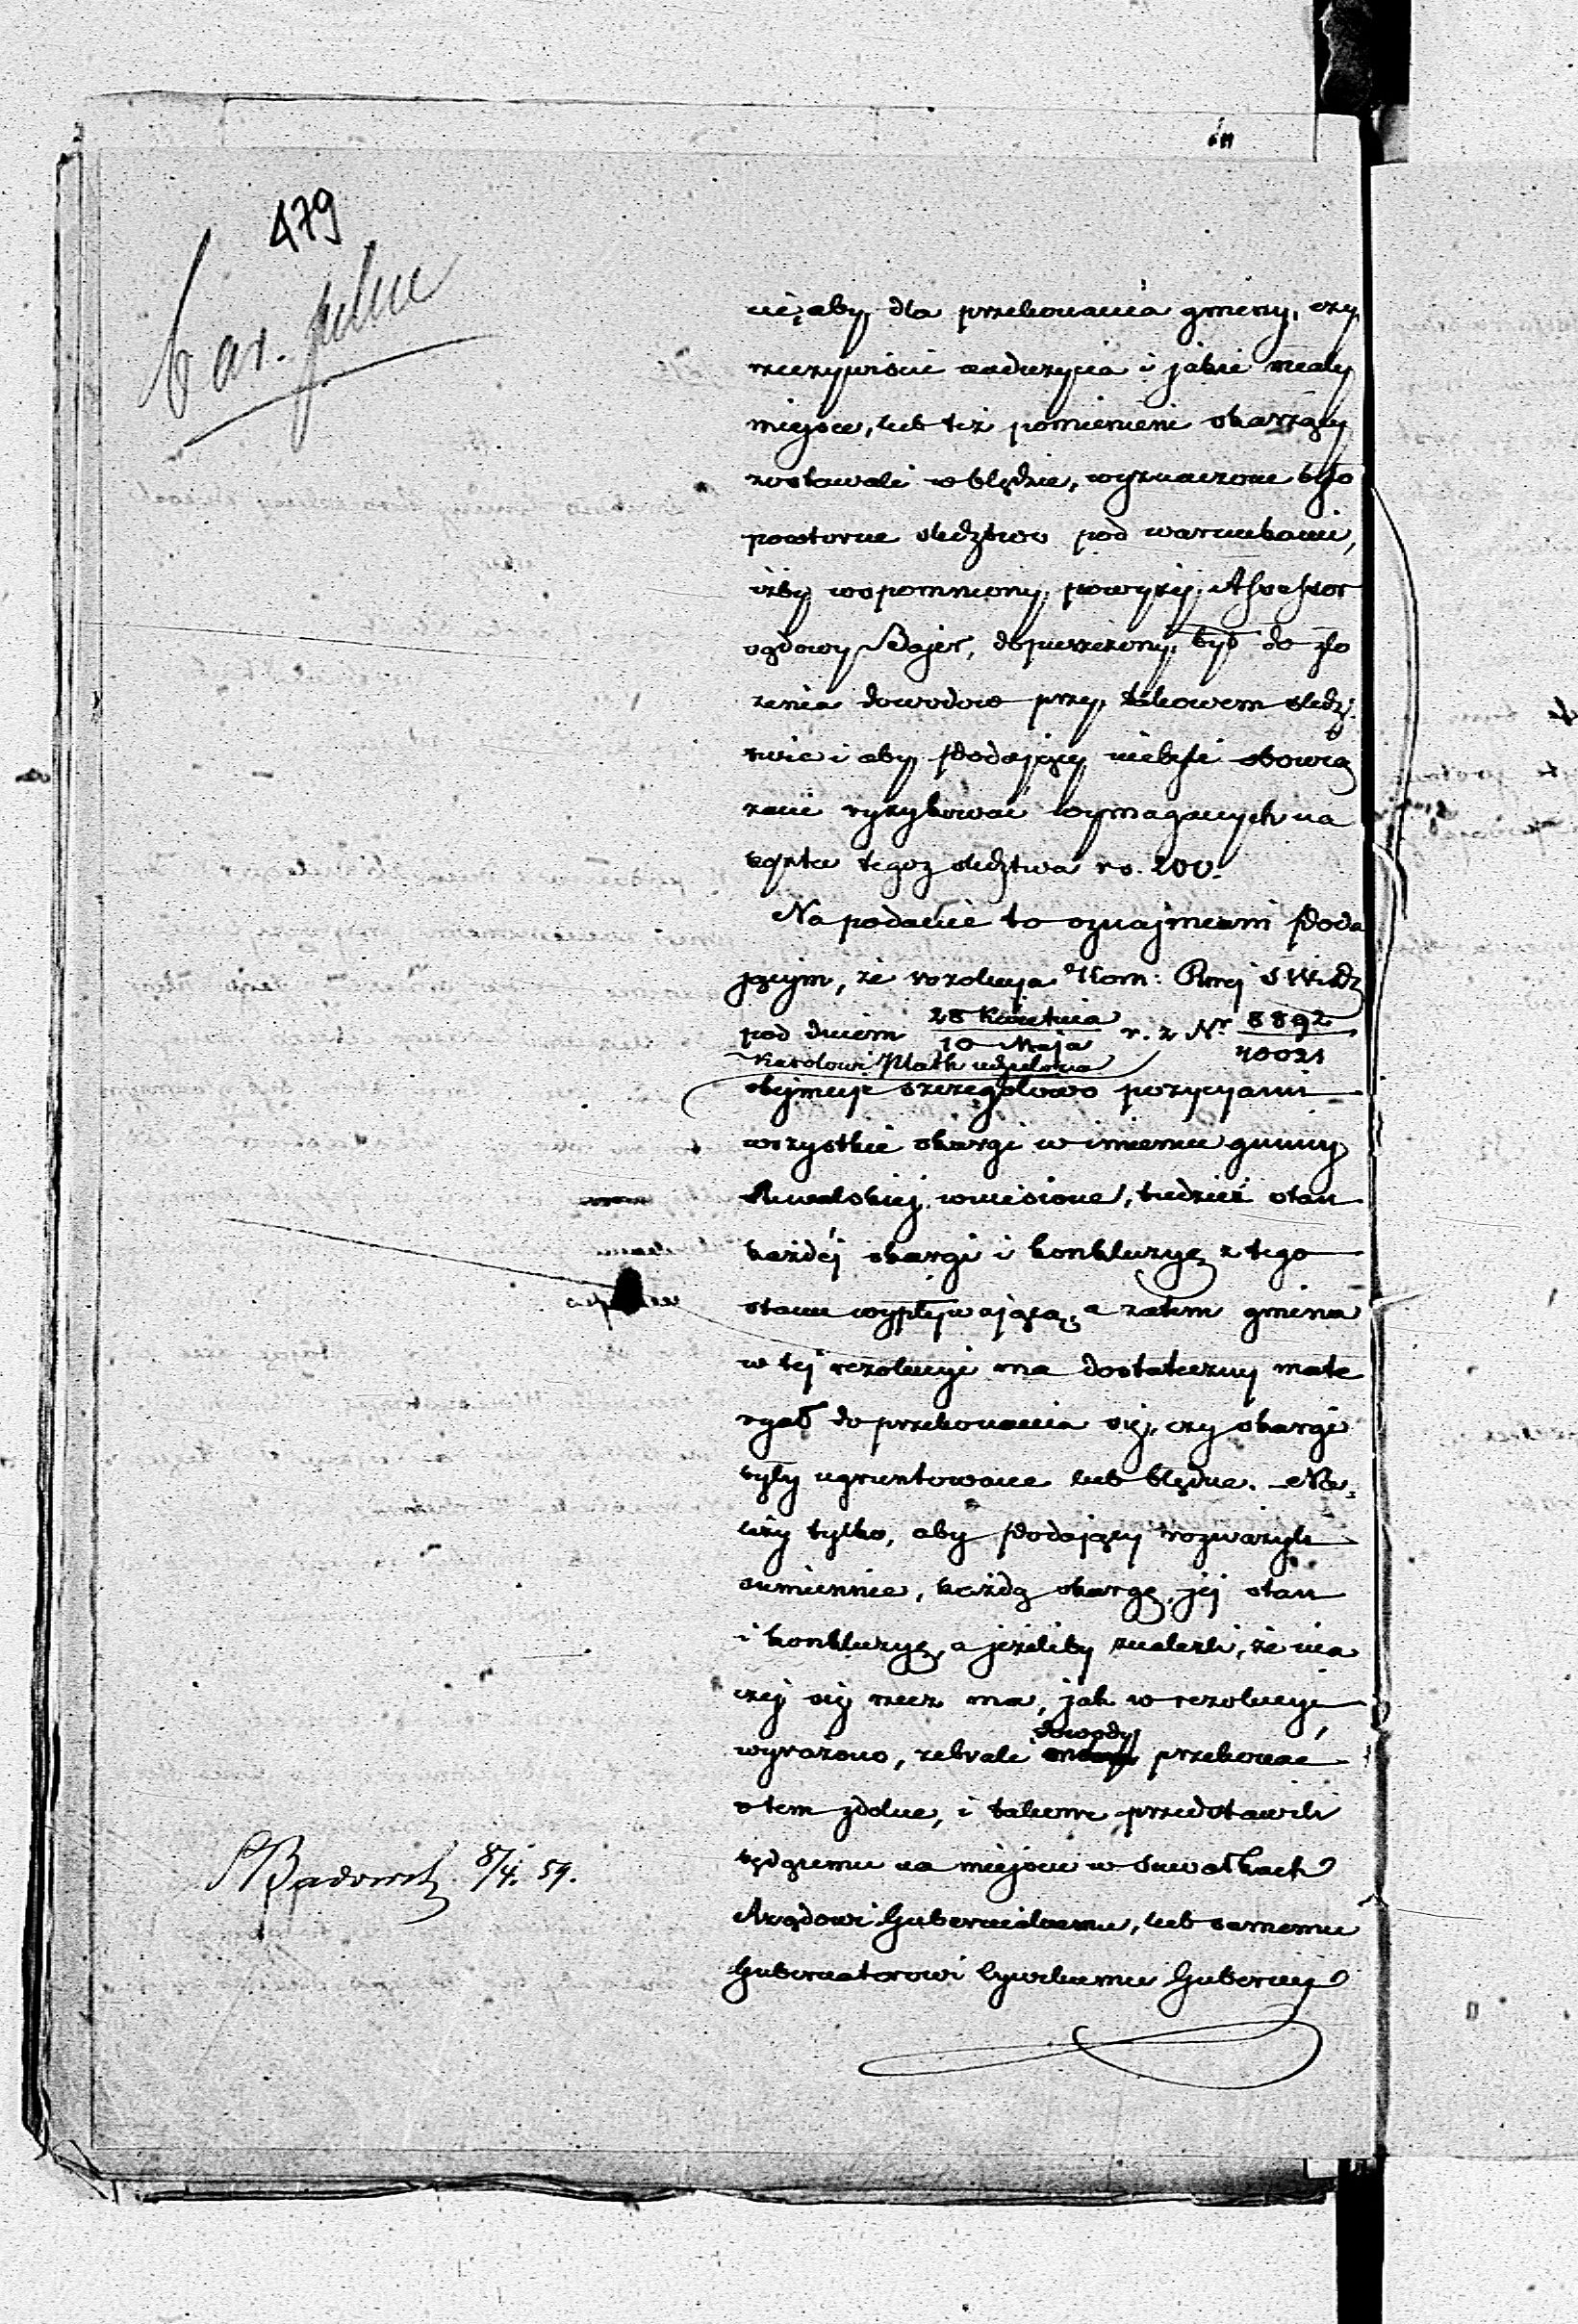 479
nię, aby dla przekonania gminy, czy
rzeczywiście nadużycia i jakie miały
miejsce, lub też pomienieni skarżący
zostawali w błędzie, wyznaczone było
powtórne śledztwo pod warunkami,
iżby wspomniony powyżej Assessor
sądowy Bajer, dopuszczony był do zło
żenia dowodów przy takowem śledz:
twie i aby Podający niebyli obowią
zani ryzykować wymaganych na
koszta tegoż śledztwa rs. 200.
Na podanie to oznajmiam Poda
jącym, że rezolucya Kom: Rząj S W. i D.
pod dniem 28 Kwietnia / 10 Maja r. z Nr 8892 / 20021
Karolowi Plath udzielona
obejmuje szczegółowo pozycyami
wszystkie skargi w imieniu gminy
Suwalskiej wniesione, tudzież stan
każdéj skargi i konkluzyę z tego
stanu wypływającą, a zatem gmina
w tej rezolucyi ma dostateczny mate
ryał do przekonania się, czy skargi
były ugruntowane lub błędne. – Na:
leży tylko, aby Podający rozważyli
sumiennie, każdą skargę, jej stan
i konkluzyę, a jeżeliby znaleźli, że ina
czej się rzecz ma, jak w rezolucyi
dowody
wyrażono, zebrali przekonać
o tem zdolne, i takowe przedstawili
będącemu na miejscu w Suwałkach
Rządowi Gubernialnemu, lub samemu
Gubernatorowi Cywilnemu Gubernij
8/4. 59.